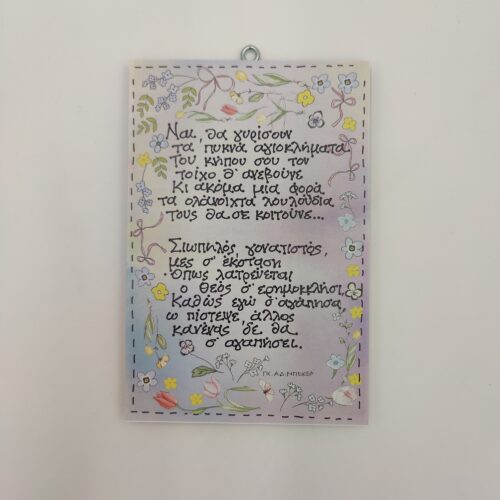 Ναι, θα γυρίσουν
τα πυκνά αγιοκλήματα
Του κήπου σου τον
τοίχο θ' ανεβούνε
Κι ακόμα μία φορά
τα ολάνοιχτα λουλούδια
τους θα σε κοιτούνε...
Σιωπηλός γονατιστός,
μες σ' έκσταση
Όπως λατρεύεται
ο θεός σ' ερημοκλήσι,
Καθώς εγώ σ' αγάπησα,
ω πίστεψε, άλλος
κανένας δε θα
σ' αγαπήσει.
ΓΚ. ΑΔ. ΜΠΕΚΕΡ